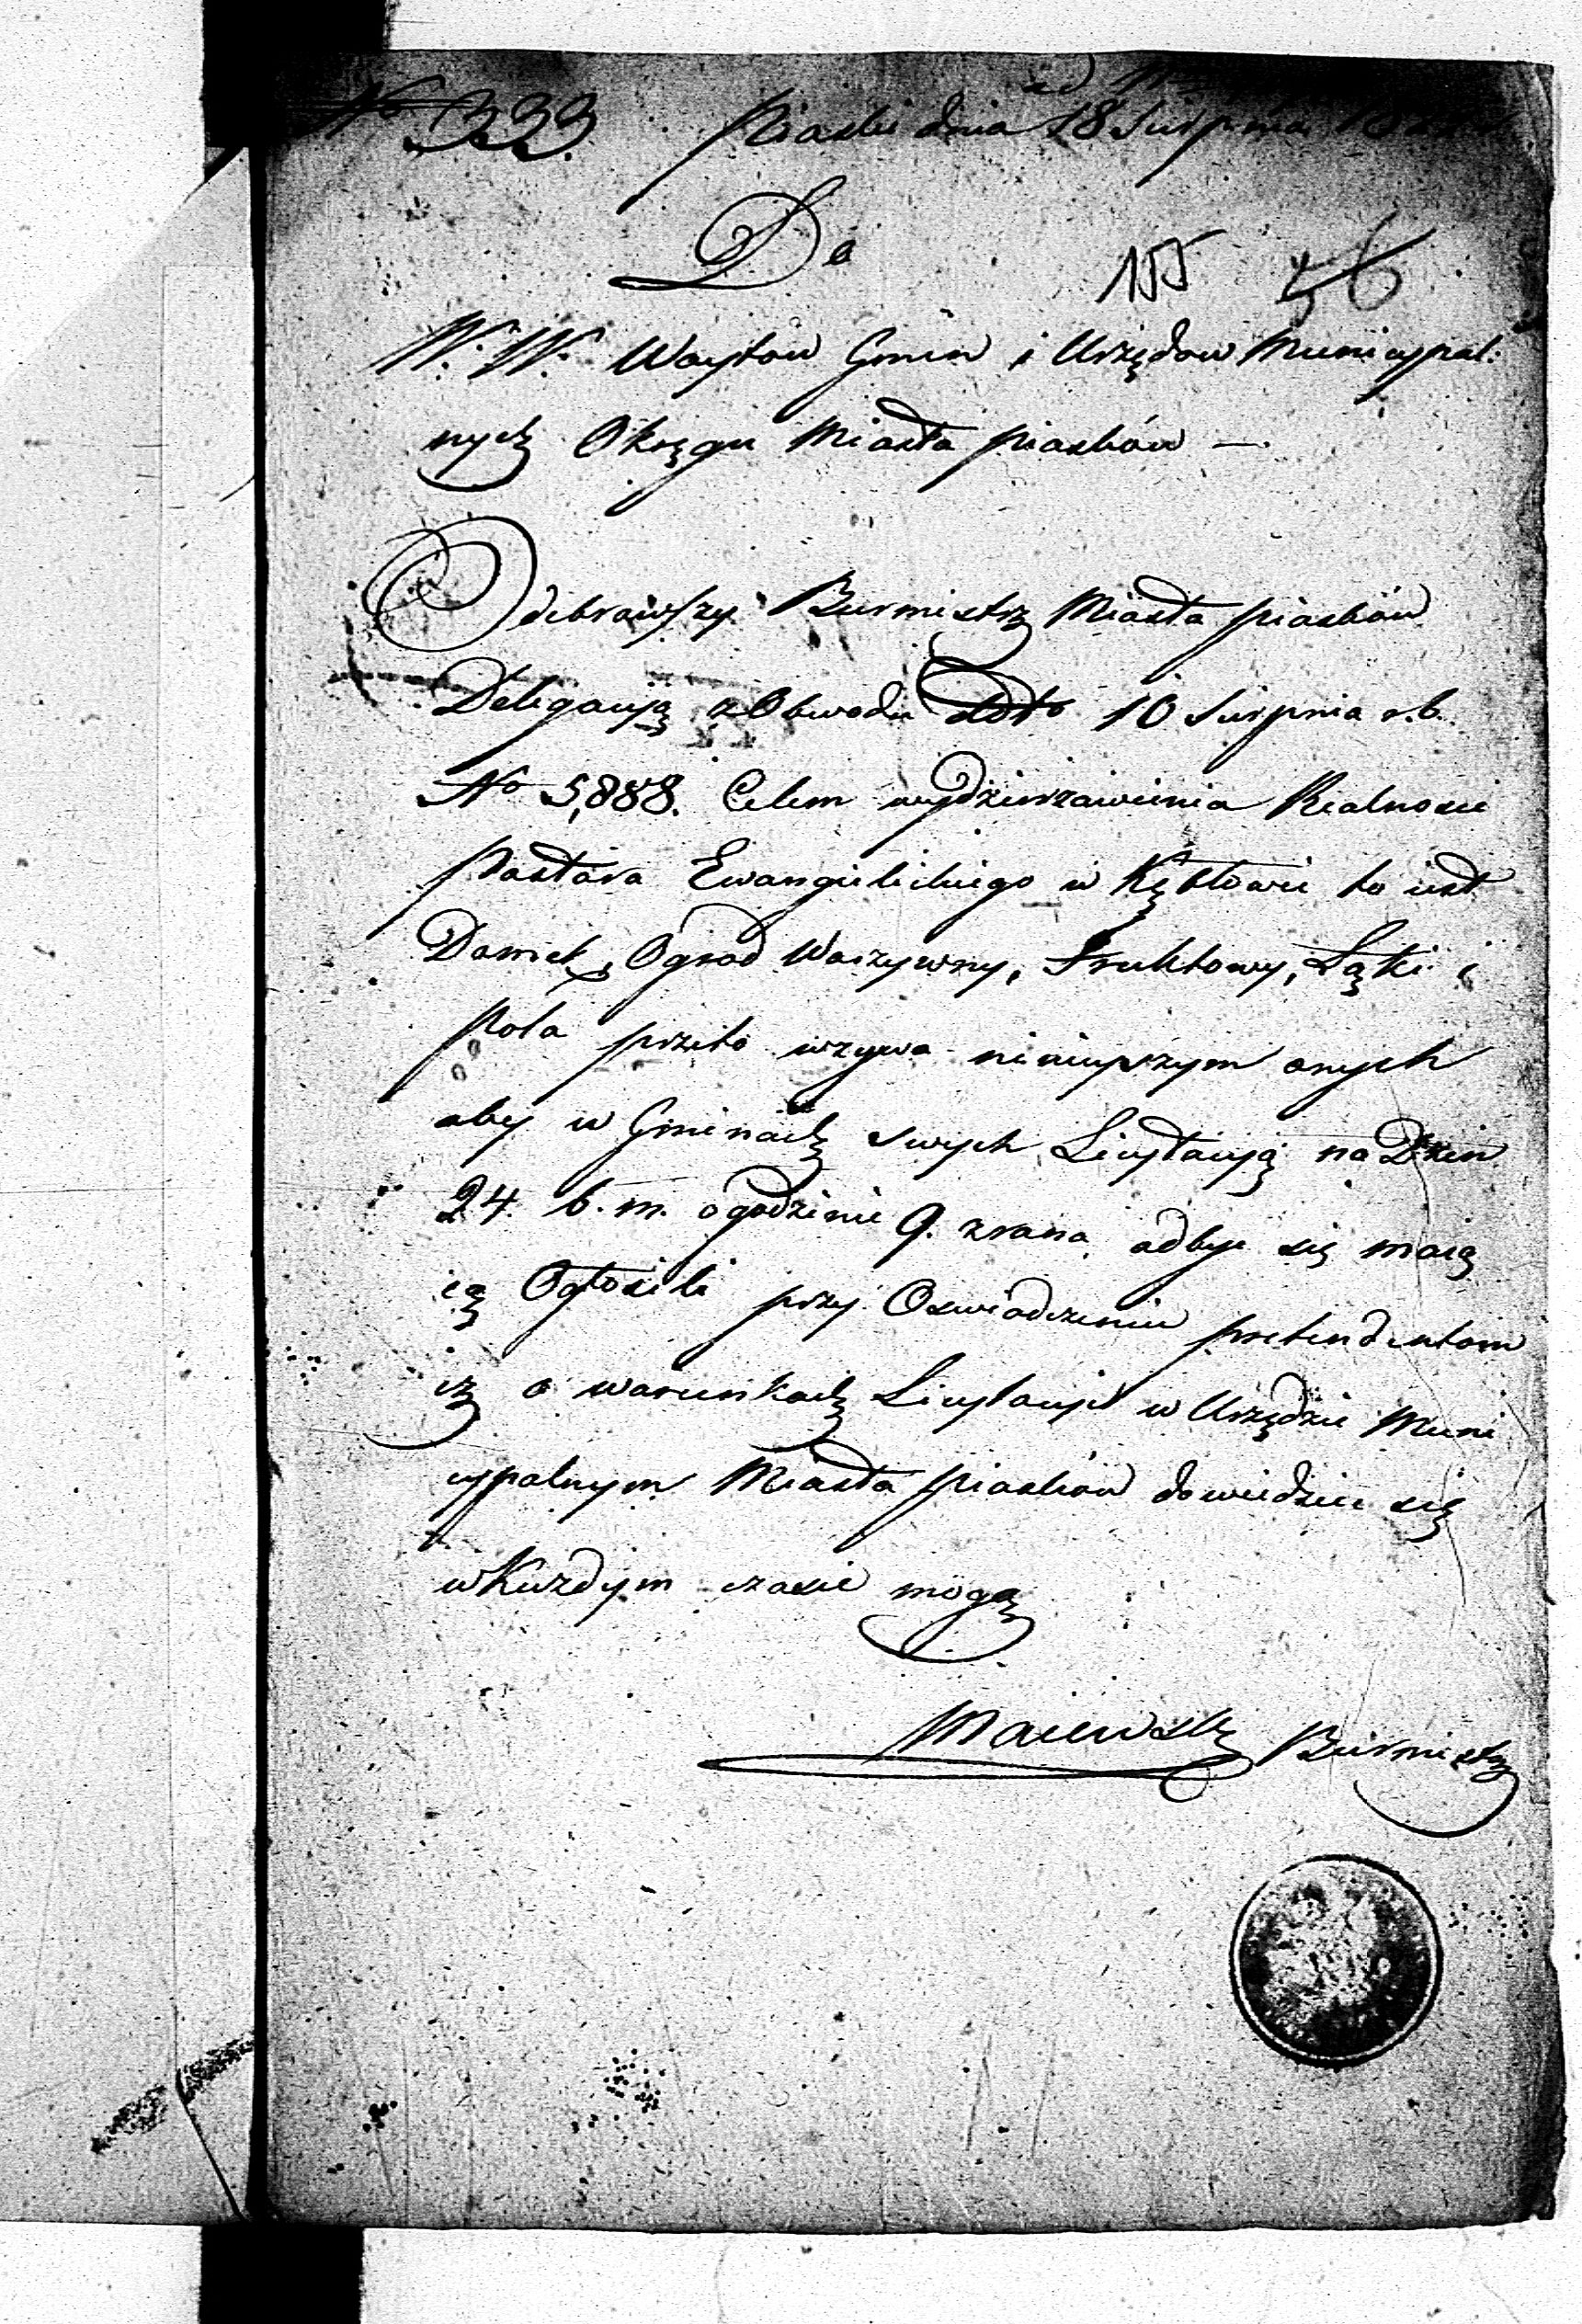 No 333. Piaski dnia 18 Sierpnia
Do
155 56
W. W. Woytow Gmin i Urzędow Municypal:
nych Okręgu Miasta Piasków —
Odebrawszy Burmistrz Miasta Piasków
Delegacyją z Obwodu ddto 10 Sierpnia r. b.
No 5,888. Celem wydzierzawienia Realnosci
Pastora Ewangielickiego w Kębłowie to iest
Domek, Ogrod Warzywny, Fruktowy, Łąki i
Pola przeto wzywa ninieyszym onych
aby w Gminach swych Licytacyją na Dzien
24 b. m. o godzinie 9. zrana odbyc się maią
cą Ogłosili przy Oswiadczeniu pretendentom
iz o warunkach Licytacyi w Urzędzie Muni
cypalnym Miasta Piasków dowiedziec się
w Kazdym czasie mogą
Maiewski Burmistrz